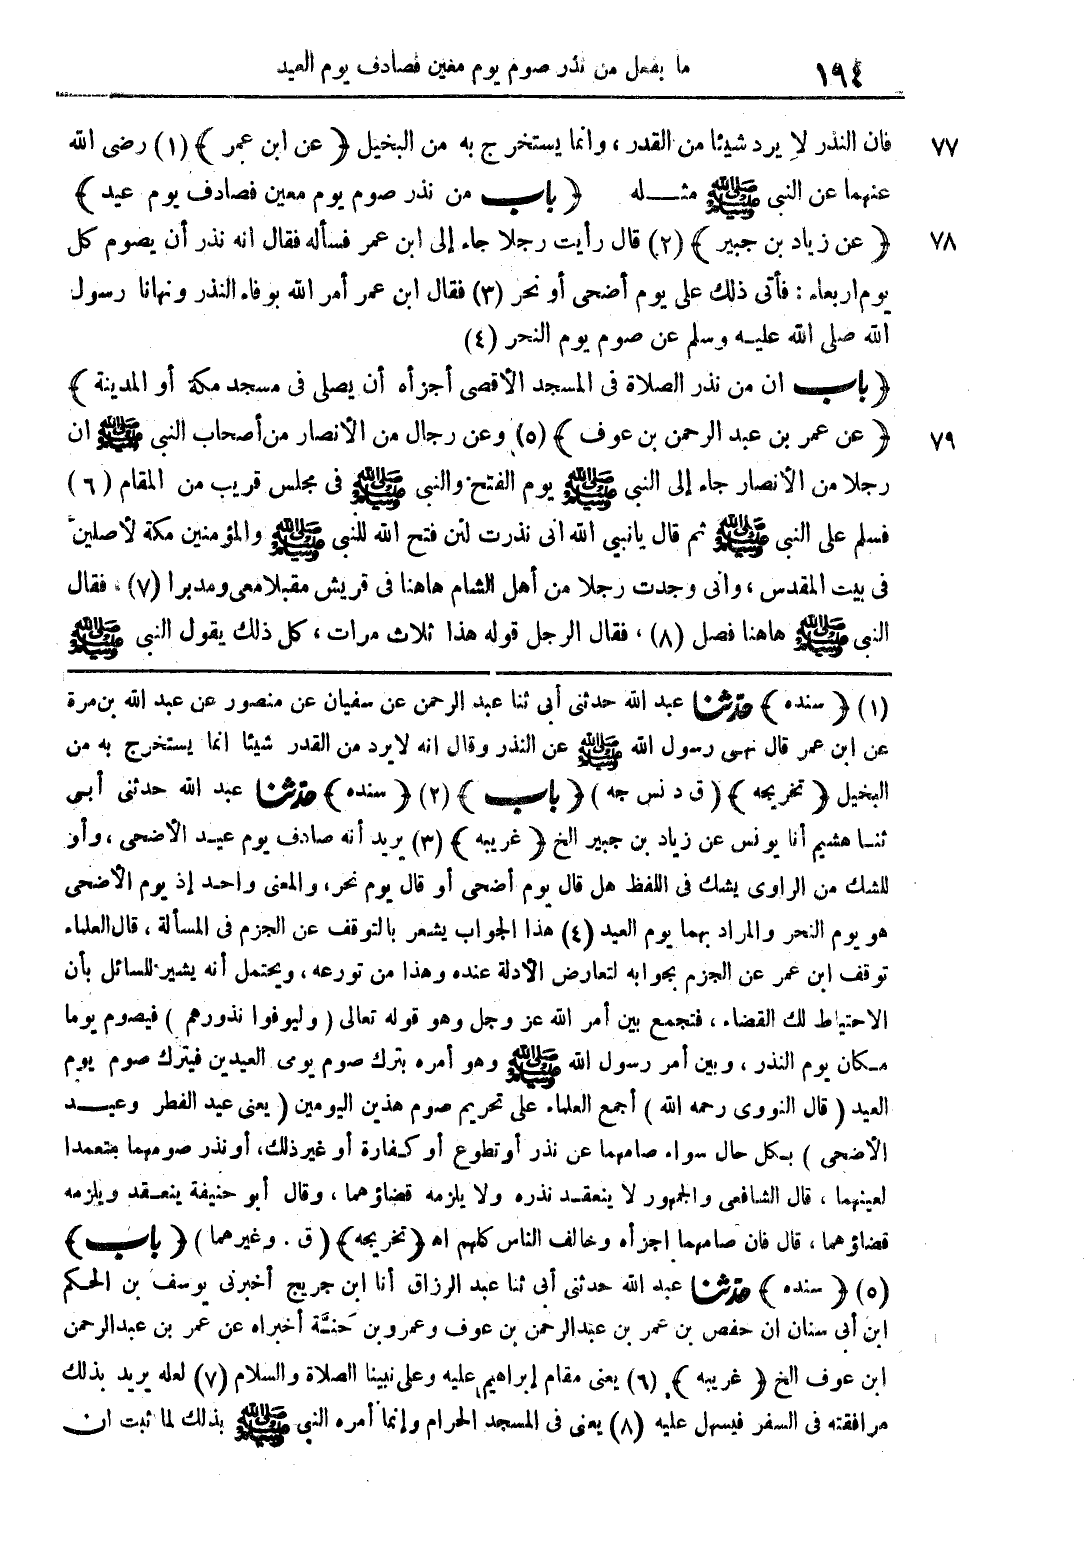 ١٩٤ ما يفعل من نذر صوم يوم معين فصادف يوم العيد
٧٧ فان النذر لا يرد شيئا من القدر ، وانما يستخرج به من البخيل ﴿ عن ابن عمر ﴾ (١) رضى الله
عنهما عن النبى ﷺ مثـــله ﴿ باب من نذر صوم يوم معين فصادف يوم عيد ﴾
٧٨ ﴿ عن زياد بن جبير ﴾ (٢) قال رأيت رجلا جاء إلى ابن عمر فسأله فقال انه نذر أن يصوم كل
يوم اربعاء : فأتى ذلك على يوم أضحى أو نحر (٣) فقال ابن عمر أمر الله بوفاء النذر ونهانا رسول
الله صلى الله عليـه وسلم عن صوم يوم النحر (٤)
﴿ باب ان من نذر الصلاة فى المسجد الأقصى أجزأه أن يصلى فى مسجد مكة أو المدينة ﴾
٧٩ ﴿ عن عمر بن عبد الرحمن بن عوف ﴾ (٥) وعن رجال من الأنصار من أصحاب النبى ﷺ ان
رجلا من الأنصار جاء إلى النبى ﷺ يوم الفتح والنبى ﷺ فى مجلس قريب من المقام (٦)
فسلم على النبى ﷺ ثم قال يانبي الله انى نذرت لئن فتح الله للنبى ﷺ والمؤمنين مكة لأصلين
فى بيت المقدس ، وانى وجدت رجلا من أهل الشام هاهنا فى قريش مقبلا معى ومدبرا (٧) ، فقال
النبى ﷺ هاهنا فصل (٨) ، فقال الرجل قوله هذا ثلاث مرات ، كل ذلك يقول النبى ﷺ
(١) ﴿ سنده ﴾ حدثنا عبد الله حدثنى أبى ثنا عبد الرحمن عن سفيان عن منصور عن عبد الله بن مرة
عن ابن عمر قال نهى رسول الله ﷺ عن النذر وقال انه لايرد من القدر شيئا انما يستخرج به من
البخيل ﴿ تخريجه ﴾ ( ق د نس جه ) ﴿ باب ﴾ (٢) ﴿ سنده ﴾ حدثنا عبد الله حدثنى أبى
ثنـا هشيم أنا يونس عن زياد بن جبير الخ ﴿ غريبه ﴾ (٣) يريد أنه صادف يوم عيـد الأضحى ، وأو
للشك من الراوى يشك فى اللفظ هل قال يوم أضحى أو قال يوم نحر، والمعنى واحـد إذ يوم الأضحى
هو يوم النحر والمراد بهما يوم العيد (٤) هذا الجواب يشعر بالتوقف عن الجزم فى المسألة ، قال العلماء
توقف ابن عمر عن الجزم بجوابه لتعارض الأدلة عنده وهذا من تورعه ، ويحتمل أنه يشير للسائل بأن
الاحتياط لك القضاء ، فتجمع بين أمر الله عز وجل وهو قوله تعالى ( وليوفوا نذورهم ) فيصوم يوما
مـكان يوم النذر ، وبين أمر رسول الله ﷺ وهو أمره بترك صوم يومى العيدين فيترك صوم يوم
العيد ( قال النووى رحمه الله ) أجمع العلماء على تحريم صوم هذين اليومين ( يعنى عيد الفطر وعيـــد
الأضحى ) بـكل حال سواء صامهما عن نذر أو تطوع أو كـفارة أو غير ذلك، أو نذر صومهما متعمدا
لعينهما ، قال الشافعى والجمهور لا ينعقـد نذره ولا يلزمه قضاؤهما ، وقال أبو حنيفة ينعـقد ويلزمه
قضاؤهما ، قال فان صامهما اجزأه وخالف الناس كلهم اه ﴿ تخريجه ﴾ ( ق . وغيرهما ) ﴿ باب ﴾
(٥) ﴿ سنده ﴾ حدثنا عبد الله حدثنى أبى ثنا عبد الرزاق أنا ابن جريج أخبرنى يوسف بن الحكم
ابن أبى سنان ان حفص بن عمر بن عبدالرحمن بن عوف وعمرو بن حنَّة أخبراه عن عمر بن عبدالرحمن
ابن عوف الخ ﴿ غريبه ﴾ (٦) يعنى مقام إبراهيم عليه وعلى نبينا الصلاة والسلام (٧) لعله يريد بذلك
مرافقته فى السفر فيسهل عليه (٨) يعنى فى المسجد الحرام وإنما أمره النبى ﷺ بذلك لما ثبت ان